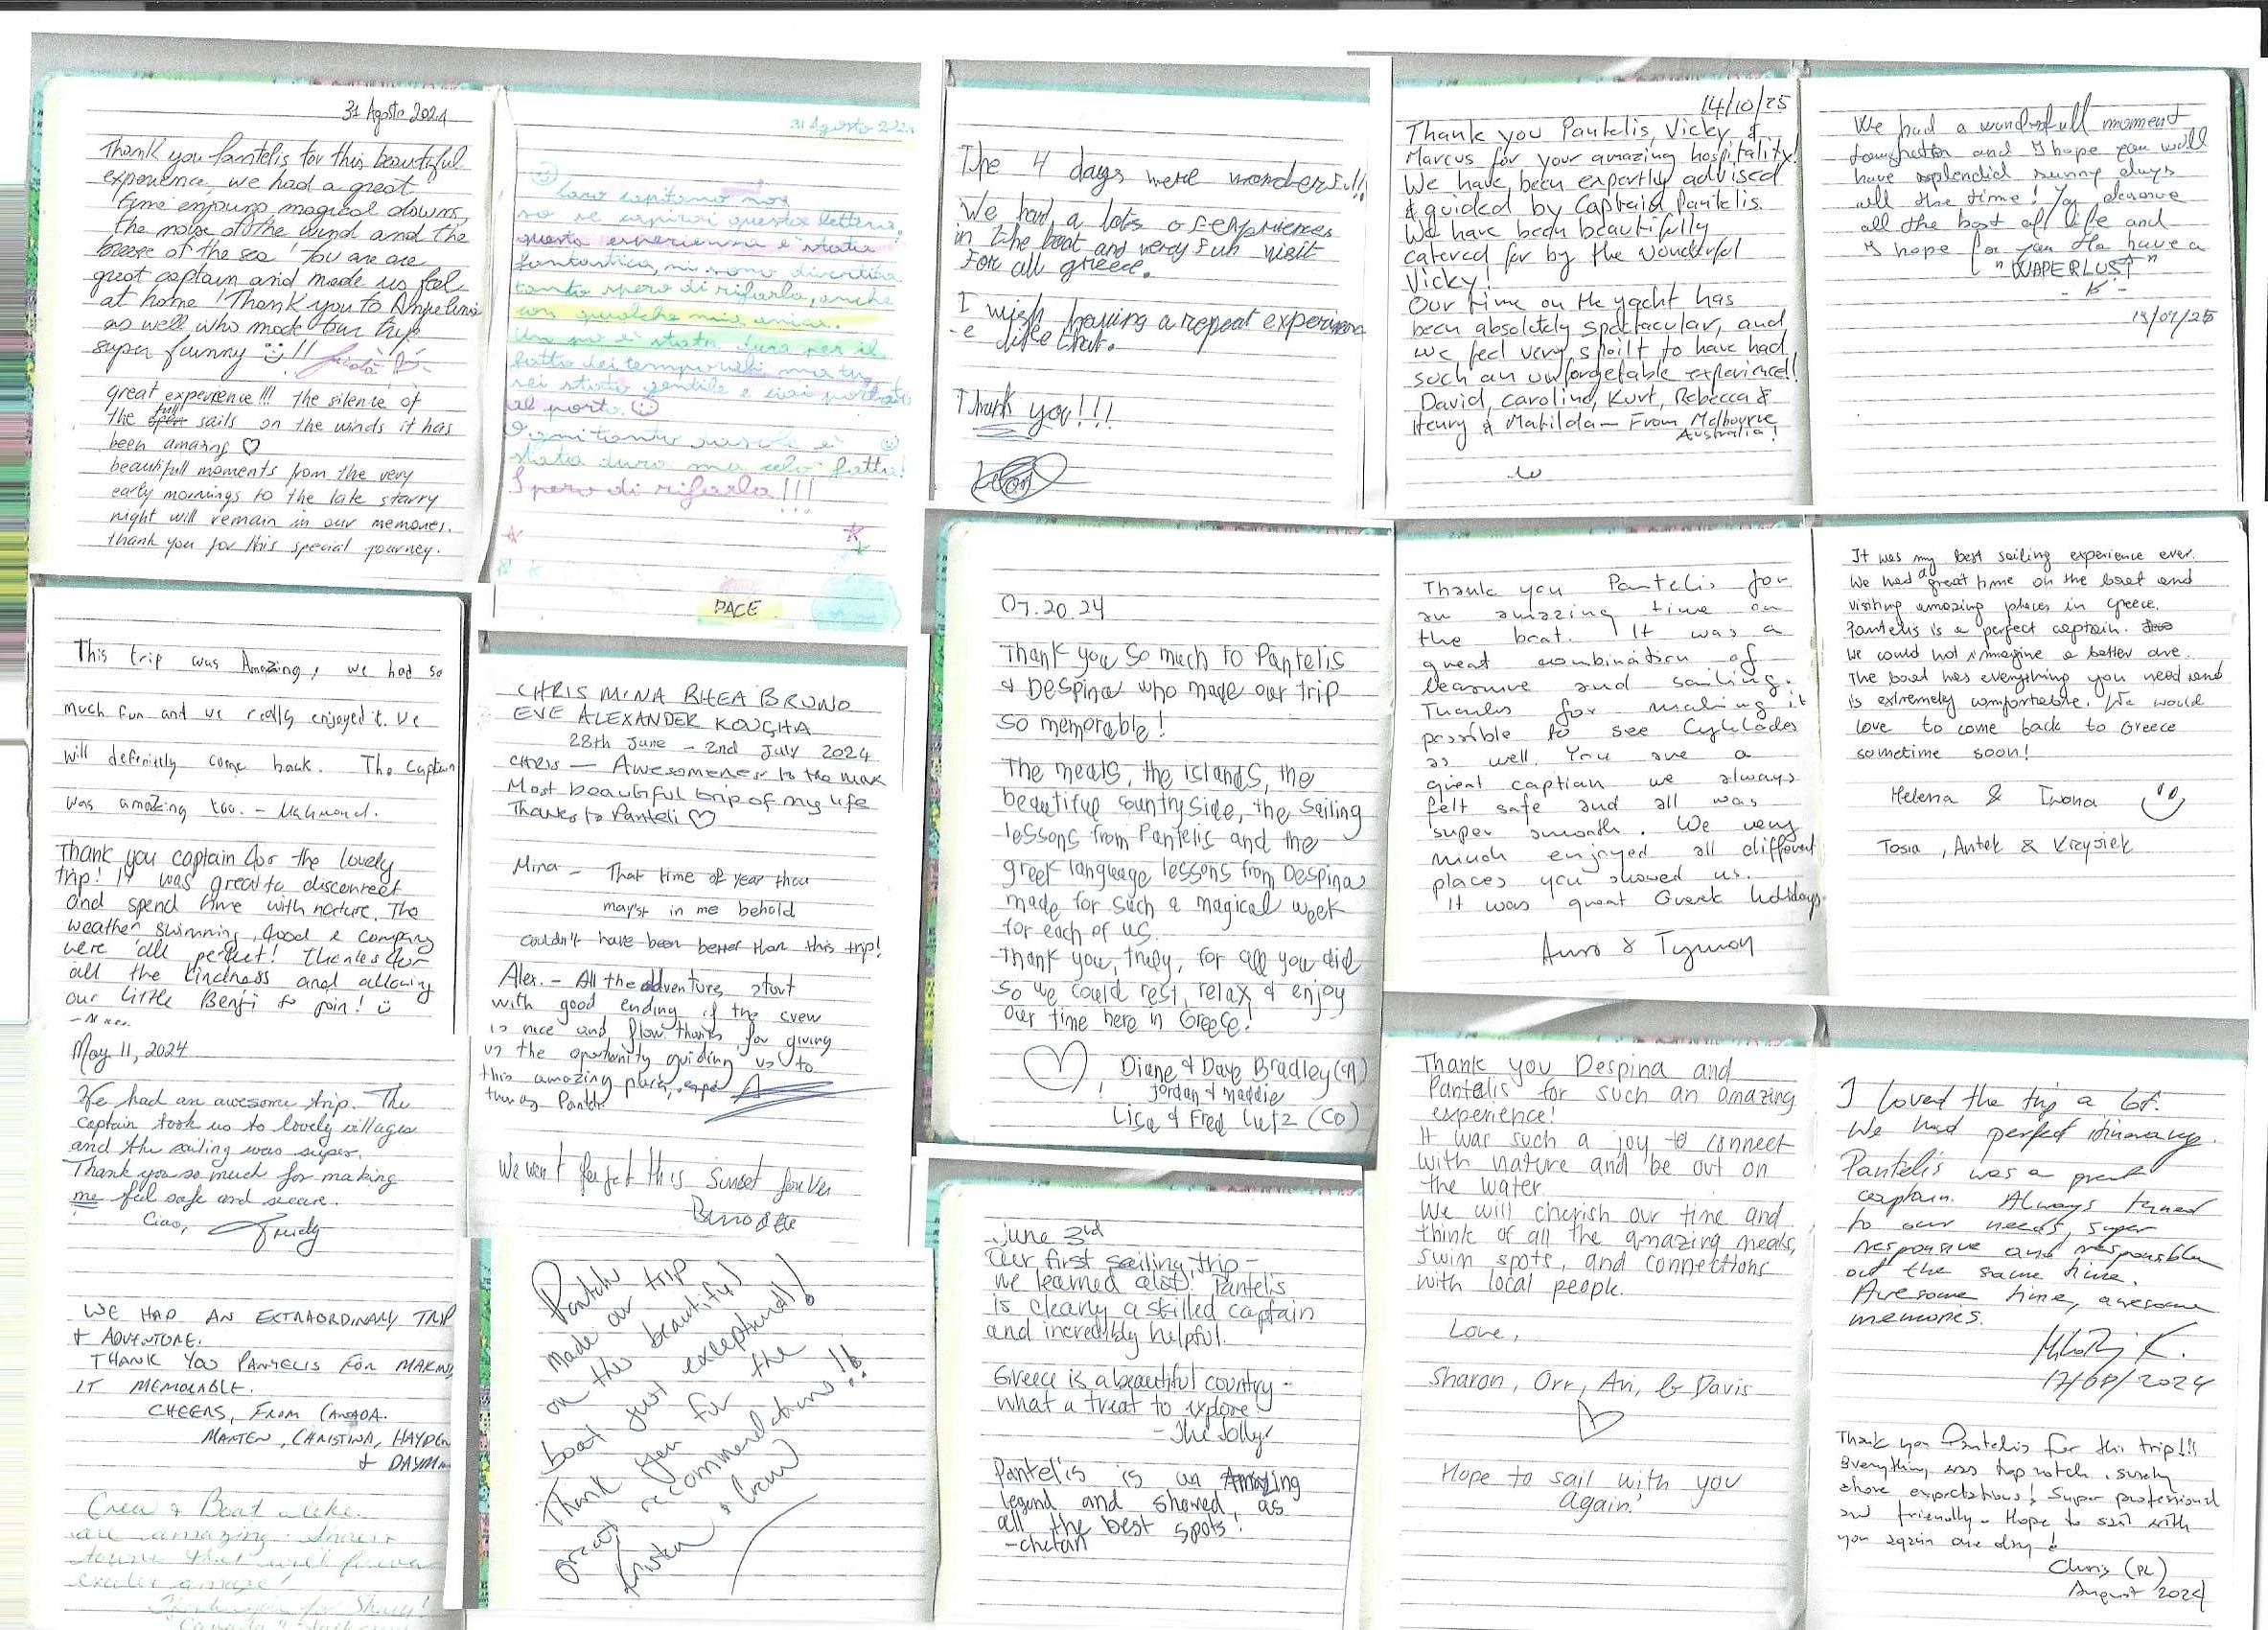 31 Agosto 2024
Thank you Pantelis for this beautiful
experience, we had a great
time enjoying magical downs,
the noise of the wind and the
breese of the sea! You are are
great captain and made us feel
at home! Thank you to Angelina
as well who made our trip
super funny !!!
great experience!!! the silence of
the full sails on the winds it has
been amazing ♡
beautifull moments from the very
early mornings to the late starry
night will remain in our memories.
thank you for this special journey.
31 Agosto 2024
Caro capitano non
so se capirai questa lettera,
questa esperienza è stata
fantastica, mi sono divertita
tanto spero di rifarla, anche
con qualche mia amica.
Un po è stata dura per il
fatto dei temporali, ma tu
sei stato gentile e ci hai portato
al porto.
Ogni tanto è
stata dura ma celo fatta!
Spero di rifarla!!!
PACE
The 4 days were wonderful!!
We had a lots of experiences
in the boat and very fun visit
for all greece.
I wish having a repeat experienc
-e like that.
Thank you!!!
14/10/25
Thank you Pantelis, Vicky &
Marcus for your amazing hospitality!
We have been expertly advised
& guided by Captain Pantelis.
We have been beautifully
catered for by the wonderful
Vicky!
Our time on the yacht has
been absolutely spectacular, and
we feel very spoilt to have had
such an unforgetable experience!!
David, Caroline, Kurt, Rebecca &
Henry & Matilda - From Melbourne
Australia!
We had a wonderfull moment
and I hope you will
have splendid sunny days
all the time! You deserve
all the best of life and
I hope for you to have a
"WAPERLUST"
This trip was Amazing, we had so
much fun and we really enjoyed it. We
will definietly come back. The Captain
was amazing too. - Mahmoud.
Thank you captain for the lovely
trip! It was great to disconnect
and spend time with nature. The
weather swimming, food & company
were all perfect! Thanks for
all the kindness and allowing
our little Benji to join!
May 11, 2024
We had an awesome trip. The
captain took us to lovely villages
and the sailing was super.
Thank you so much for making
me feel safe and secure.
Ciao,
WE HAD AN EXTRAORDINARY TRIP
& ADVENTURE.
THANK YOU PANTELIS FOR MAKING
IT MEMORABLE.
CHEERS, FROM CANADA.
MARTEN, CHRISTINA, HAYDEN
&
Crew & Boat alike
are amazing.
CHRIS MINA RHEA BRUNO
EVE ALEXANDER KOUCHA
28th June - 2nd July 2024
CHRIS - Awesomeness to the max
Most beautiful trip of my life
Thanks to Panteli ♡
Mina - That time of year thou
may'st in me behold
couldn't have been better than this trip!
Alex. - All the adventure, start
with good ending if the crew
is nice and flow thanks for giving
us the oportunity guiding us to
this amazing
We won't forget this Sunset forever
Pantelis
made our trip
on the beautiful
boat just exceptional!
Thank you for the
great recommendations!!
& Crew
07.20.24
Thank you so much to Pantelis
& Despina who made our trip
so memorable!
The meals, the islands, the
beautiful countryside, the sailing
lessons from Pantelis and the
greek language lessons from Despina
made for such a magical week
for each of us.
Thank you, truly, for all you did
so we could rest, relax, & enjoy
our time here in Greece!
♡, Diane & Dave Bradley (CA)
Jordan & Maddie
Lisa & Fred Lutz (CO)
June 3rd
Our first sailing trip -
we learned alot! Pantelis
is clearly a skilled captain
and incredibly helpful.
Greece is a beautiful country -
what a treat to explore!
- The Jollys
Pantelis is an Amazing
legend and showed, as
all the best spots!
- chetan
Thank you Pantelis for
an amazing time on
the boat. It was a
great combination of
leasure and sailing.
Thanks for making it
possible to see Cyklades
as well. You are a
great captian we always
felt safe and all was
super smooth. We very
much enjoyed all different
places you showed us.
It was great Greek holidays
It was my best sailing experience ever.
We had a great time on the boat and
visiting amazing places in Greece.
Pantelis is a perfect captain.
We could not imagine a better one.
The boat has everything you need and
is extremely comfortable. We would
love to come back to Greece
sometime soon!
Helena & Iwona
Tosia, Antek & Krzysiek
Thank you Despina and
Pantelis for such an amazing
experience!
It was such a joy to connect
with nature and be out on
the water.
We will cherish our time and
think of all the amazing meals,
swim spots, and connections
with local people.
Love,
Sharon, Orr, Avi, & Davis
♡
Hope to sail with you
again!
I loved the trip a lot.
We had perfect itinerary.
Pantelis was a great
captain. Always tuned
to our needs, super
responsive and responsible
at the same time.
Awesome time, awesome
memories.
Thank you Pantelis for this trip!!!
Everything was top notch, surely
above expectations! Super professional
and friendly. Hope to sail with
you again one day!
Chris (PL)
August 2024